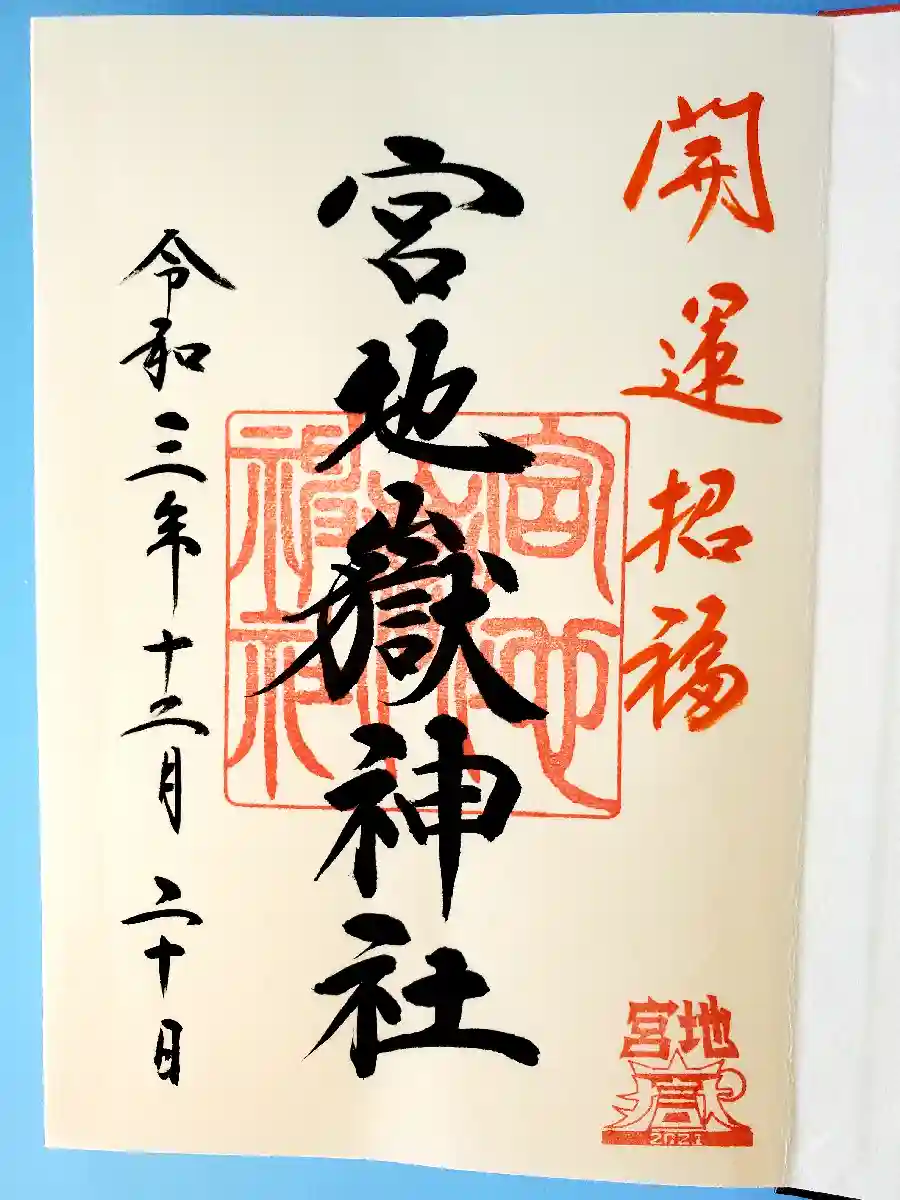 開運招福
宮地嶽神社
令和三年十二月二十日
宮地
嶽
2021